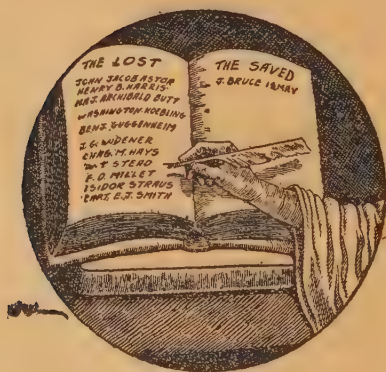 THE LOST
JOHN JACOB ASTOR
HENRY B. HARRIS.
MAJ. ARCHIBALD BUTT
WASHINGTON. ROEBLING
BENJ. GUGGENHEIM
J. G. WIDENER
CHAS. M. HAYS
W. T STEAD
F. D. MILLET
ISIDOR STRAUS
CAPT. E. J. SMITH
THE SAVED
J. BRUCE ISMAY